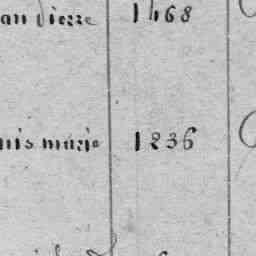 an Pierre 1468
nis marie 1236